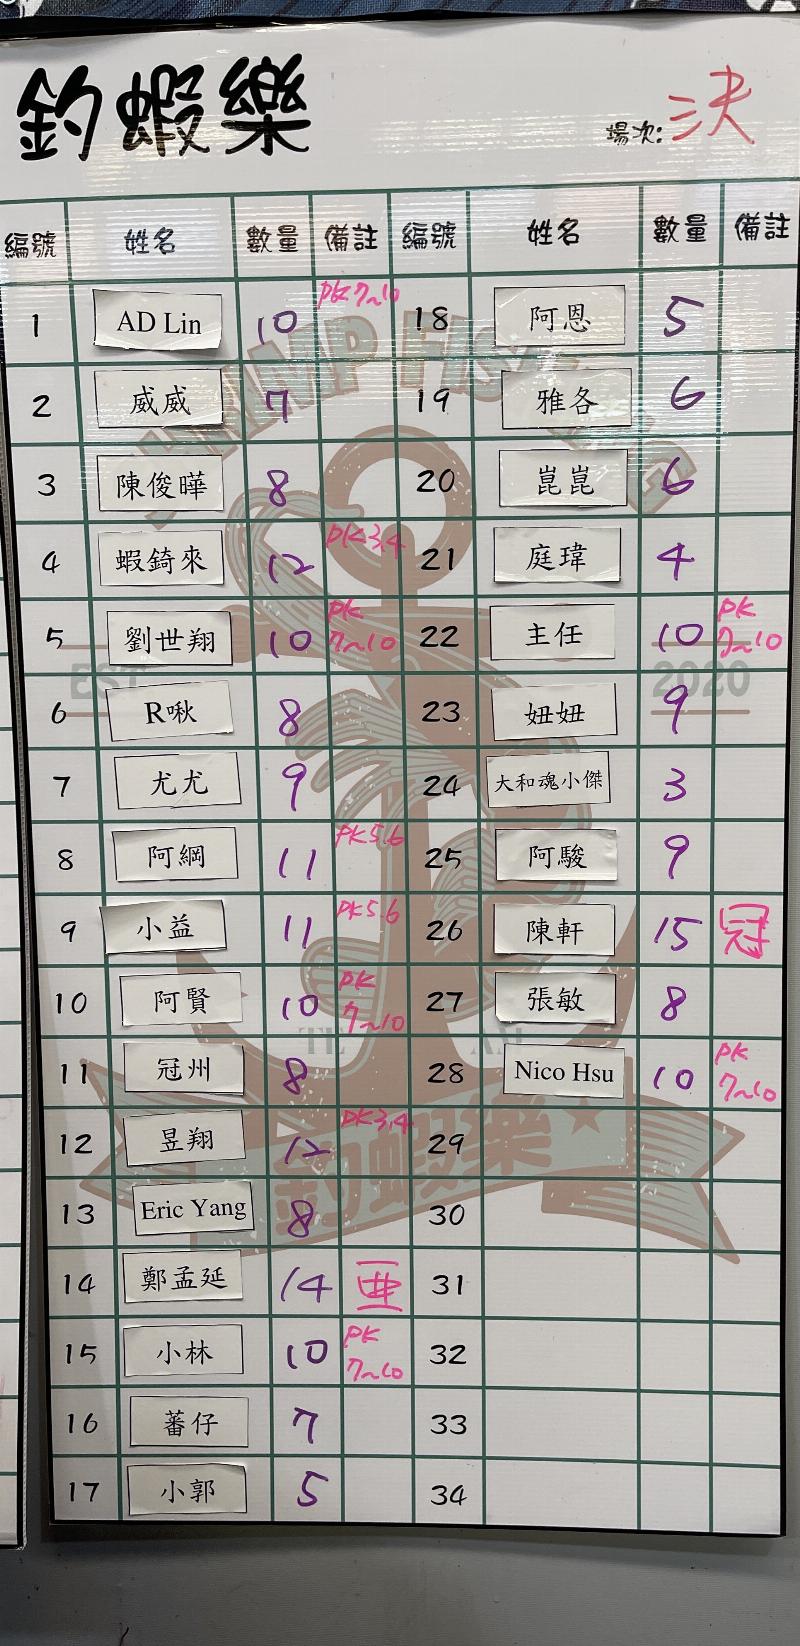 釣蝦樂
場次:決
編號 姓名 數量 備註 編號 姓名 數量 備註
1 AD Lin 10 PK7~10 18 阿恩 5
2 威威 7 19 雅各 6
3 陳俊曄 8 20 崑崑 6
4 蝦錡來 12 PK3,4 21 庭瑋 4
5 劉世翔 10 PK 7~10 22 主任 10 PK 7~10
6 R啾 8 23 妞妞 9
7 尤尤 9 24 大和魂小傑 3
8 阿綱 11 PK5.6 25 阿駿 9
9 小益 11 PK5.6 26 陳軒 15 冠
10 阿賢 10 PK 7~10 27 張敏 8
11 冠州 8 28 Nico Hsu 10 PK 7~10
12 昱翔 12 PK3,4 29
13 Eric Yang 8 30
14 鄭孟延 14 亜 31
15 小林 10 PK 7~10 32
16 蕃仔 7 33
17 小郭 5 34
SHRIMP FISHING
EST 2020
TEAM
釣蝦樂